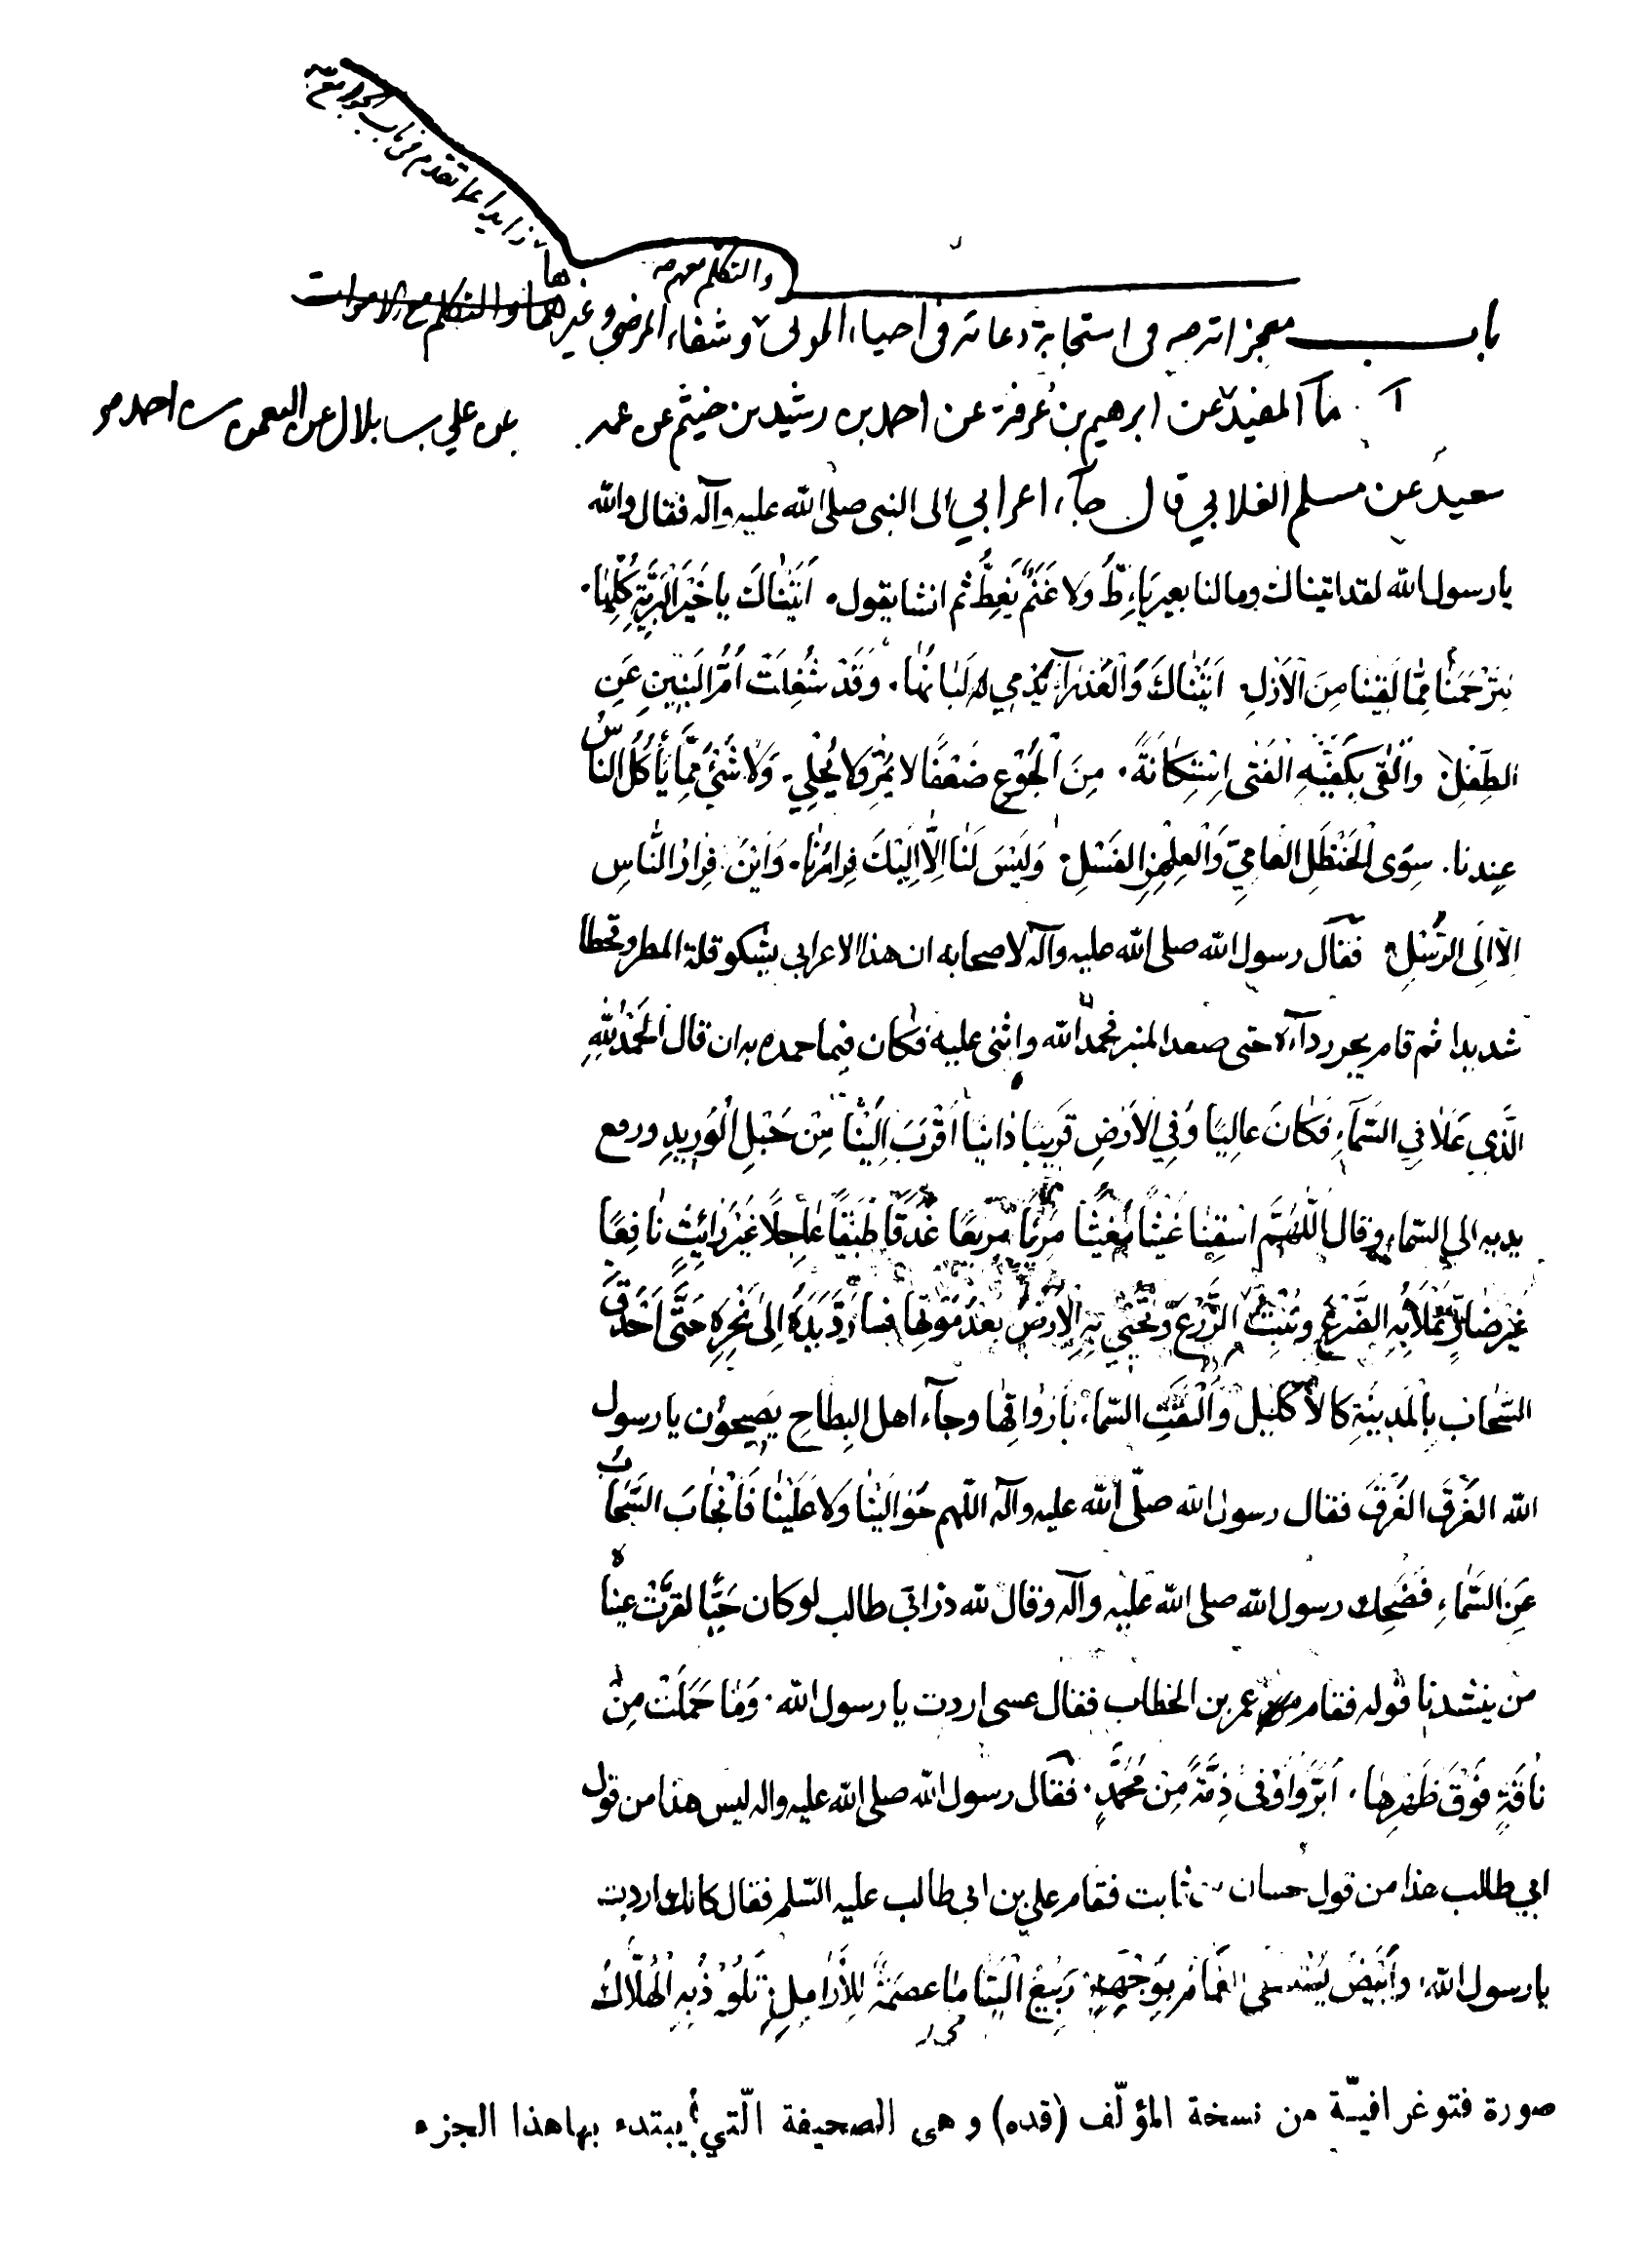 زايدا عما تقدم في باب الجوامع
والتكلم معهم ص
باب معجزاته ص في استجابة دعائه في احياء الموتى وشفاء المرضى وغيرهما والتكلم مع الاموات
ها
آ ما المفيد عن ابرهيم بن عرفة عن احمد بن رشيد بن خيثم عن عمه
عن علي بن بلال عن النعمن بن احمد
سعيد عن مسلم الغلابي قال جآء اعرابي الى النبي صلى الله عليه وآله فقال والله
يا رسول الله لقد اتيناك وما لنا بعير يَاءِطُّ وَلا غَنَمٌ يَغِطُّ ثم انشا يقول اَتَيْنَاكَ يا خَيْرَ الْبَرِيَّةِ كُلِّهَا
لِتَرْحَمَنَا مِمَّا لَقِينَا مِنَ الْاَزْلِ اَتَيْنَاكَ وَالْعَذْرَآءُ يَدْمِي لَبَانُهَا وَقَدْ شُغِلَتْ اُمُّ الْبَنِينِ عَنِ
الطِّفْلِ وَاَلْقَى بِكَفَّيْهِ الْفَتَى اِسْتِكَانَةً مِنَ الْجُوعِ ضَعْفًا لا يُمِرُّ وَلا يُحْلِي وَلا شَيْءَ مِمَّا يَأْكُلُ النَّاسُ
عِندنا سِوَى الْحَنْظَلِ الْعَامِيِّ وَالْعِلْهِزِ الْفَسْلِ وَلَيْسَ لَنَا اِلَّا اِلَيْكَ فِرَارُنَا وَاَيْنَ فِرَارُ النَّاسِ
اِلَّا اِلَى الرُّسْلِ فقال رسول الله صلى الله عليه وآله لاصحابه ان هذا الاعرابي يشكو قلة المطر وقحطا
شديدا ثم قام يجر ردآءه حتى صعد المنبر فحمد الله واثنى عليه فكان فيما حمده به ان قال الْحَمْدُ لِلّهِ
الَّذِي عَلَا فِي السَّمآءِ فَكَانَ عَالِيًا وَفِي الْاَرْضِ قَرِيبًا دَانِيًا اَقْرَبَ اِلَيْنَا مِنْ حَبْلِ الْوَرِيدِ ورفع
يديه الى السّماء وقال اللّهُمَّ اسْقِنَا غَيْثًا مُغِيثًا مَرِيئًا مَرِيعًا غَدَقًا طَبَقًا عَاجِلًا غَيْرَ رَائِثٍ نَافِعًا
غَيْرَ ضَارٍّ تَمْلَأُ بِهِ الضَّرْعَ وَتُنْبِتُ بِهِ الزَّرْعَ وَتُحْيِي بِهِ الْاَرْضَ بَعْدَ مَوْتِهَا فما رَدَّ يَدَهُ اِلَى نَحْرِهِ حَتَّى اَحْدَقَ
السَّحَابُ بِالْمَدِينَةِ كَالْاِكْلِيلِ وَاَلْقَتِ السَّمآءُ بِاَرْوَاقِهَا وجآء اهل الْبِطَاحِ يَصِيحُونَ يا رسول
الله الْغَرَقَ الْغَرَقَ فقال رسول الله صلّى الله عليه وآله اللّهم حَوَالَيْنَا وَلا عَلَيْنَا فَانْجَابَ السَّحَابُ
عَنِ السَّمَاءِ فَضَحِكَ رسول الله صلى الله عليه وآله وقال لله در ابي طالب لو كان حَيًّا لقرَّتْ عيناه
من ينشدنا قوله فقام عمر بن الخطاب فقال عسى اردت يا رسول الله وَمَا حَمَلَتْ مِنْ
نَاقَةٍ فَوْقَ ظَهْرِهَا اَبَرَّ وَاَوْفَى ذِمَّةً مِنْ مُحَمَّدٍ فقال رسول الله صلى الله عليه واله ليس هذا من قول
ابي طالب هذا من قول حسان بن ثابت فقام علي بن ابي طالب عليه السّلم فقال كانك اردت
يا رسول الله وَاَبْيَضَ يُسْتَسْقَى الْغَمَامُ بِوَجْهِهِ رَبِيعُ الْيَتَامَا عِصْمَةٌ لِلْاَرَامِلِ تَلُوذُ بِهِ الْهُلَّاكُ
صورة فتوغرافيّة من نسخة المؤلّف (قده) و هى الصحيفة الّتي يبتدء بها هذا الجزء